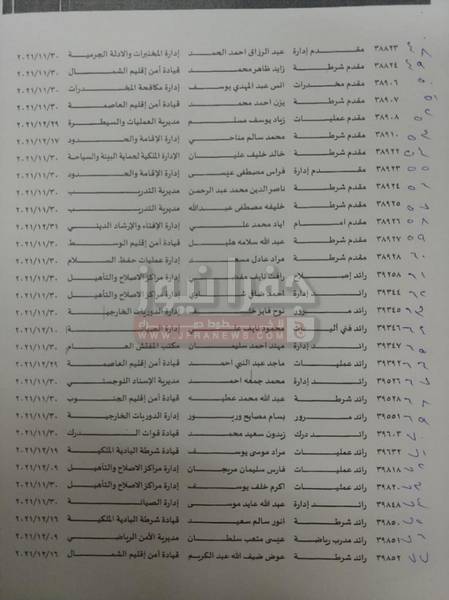 ٣٨٨٢٣ مقدم إدارة عبد الرزاق احمد الحمد إدارة المختبرات والادلة الجرمية ٢٠٢١/١١/٣٠
٣٨٨٢٤ مقدم شرطة زايد ظاهر محمد قيادة أمن إقليم الشمال ٢٠٢١/١١/٣٠
٣٨٩٠٦ مقدم مخدرات انس عبد المهدي يوسف إدارة مكافحة المخدرات ٢٠٢١/١١/٣٠
٣٨٩٠٧ مقدم شرطة يزن احمد محمد قيادة أمن إقليم العاصمة ٢٠٢١/١١/٣٠
٣٨٩٠٨ مقدم عمليات زياد يوسف مسلم مديرية العمليات والسيطرة ٢٠٢١/١٢/٢٩
٣٨٩١٠ مقدم شرطة محمد سالم مناحي إدارة الإقامة والحدود ٢٠٢١/١٢/١٧
٣٨٩٢٢ مقدم شرطة خالد خليف عليان الإدارة الملكية لحماية البيئة والسياحة ٢٠٢١/١١/٣٠
٣٨٩٢٣ مقدم إدارة فراس مصطفى عيسى إدارة الإقامة والحدود ٢٠٢١/١١/٣٠
٣٨٩٢٤ مقدم شرطة ناصر الدين محمد عبد الرحمن مديرية التدريب ٢٠٢١/١١/٣٠
٣٨٩٢٥ مقدم شرطة خليفه مصطفى عبدالله مديرية التدريب ٢٠٢١/١١/٣٠
٣٨٩٢٦ مقدم امام اياد محمد علي إدارة الإفتاء والإرشاد الديني ٢٠٢١/١٢/٣١
٣٨٩٢٧ مقدم شرطة عبد الله سلامه هليل قيادة أمن إقليم الوسط ٢٠٢١/١١/٣٠
٣٨٩٢٨ مقدم شرطة مراد عادل مسعد إدارة عمليات حفظ السلام ٢٠٢١/١١/٣٠
٣٩٢٥٨ رائد إصلاح رافت نايف إدارة مراكز الاصلاح والتأهيل ٢٠٢١/١١/٣٠
٣٩٣٤٤ رائد إدارة احمد صافي إدارة مراكز الاصلاح والتأهيل ٢٠٢١/١١/٣٠
٣٩٣٤٥ رائد مرور نوح فايز إدارة الدوريات الخارجية ٢٠٢١/١١/٣٠
٣٩٣٤٦ رائد فني محمود نايف إدارة ٢٠٢١/١٢/١٠
رائد إدارة مهند احمد سليمان مكتب المفتش العام ٢٠٢١/١١/٣٠
٣٩٣٩٢ رائد عمليات ماجد عبد النبي احمد قيادة أمن إقليم العاصمة ٢٠٢١/١٢/٢٩
٣٩٥٢٦ رائد إدارة محمد جمعه احمد مديرية الإسناد اللوجستي ٢٠٢١/١١/٣٠
٣٩٥٢٨ رائد شرطة عبد الله محمد عطيه قيادة أمن إقليم الجنوب ٢٠٢١/١١/٣٠
٣٩٥٥١ رائد مرور بسام مصايح وريور إدارة الدوريات الخارجية ٢٠٢١/١١/٣٠
٣٩٦٠٣ رائد درك زيدون سعيد محمد قيادة قوات الدرك ٢٠٢١/١١/٣٠
٣٩٦٣٢ رائد عمليات مراد موسى يوسف قيادة شرطة البادية الملكية ٢٠٢١/١٢/١٩
٣٩٨١٨ رائد عمليات فارس سليمان مريحان إدارة مراكز الاصلاح والتأهيل ٢٠٢١/١٢/٠٩
رائد عمليات اكرم خلف يوسف إدارة مراكز الاصلاح والتأهيل ٢٠٢١/١١/٣٠
٣٩٨٤٨ رائد إدارة عبد الله عايد موسى إدارة الصيانة ٢٠٢١/١١/٣٠
٣٩٨٥٠ رائد شرطة انور سالم سعيد قيادة شرطة البادية الملكية ٢٠٢١/١٢/١٦
٣٩٨٥١ رائد مدرب رياضة عيسى متعب سلطان مديرية الأمن الرياضي ٢٠٢١/١٢/٠٩
٣٩٨٥٢ رائد شرطة عوض ضيف الله عبد الكريم قيادة أمن إقليم الشمال ٢٠٢١/١٢/١٦
جفرا نيوز
WWW.JFRANEWS.COM